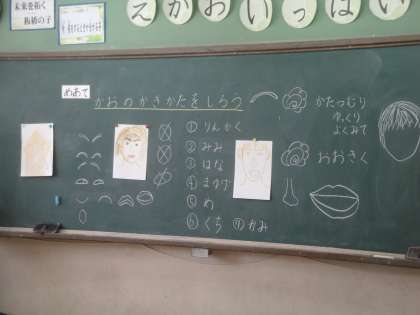 未来を拓く
板橋の子
えがおいっぱい
めあて
かおのかきかたをしろう
かたつむり
ゆっくり
よくみて
①りんかく
②みみ
おおきく
③はな
④まゆげ
⑤め
⑥くち ⑦かみ